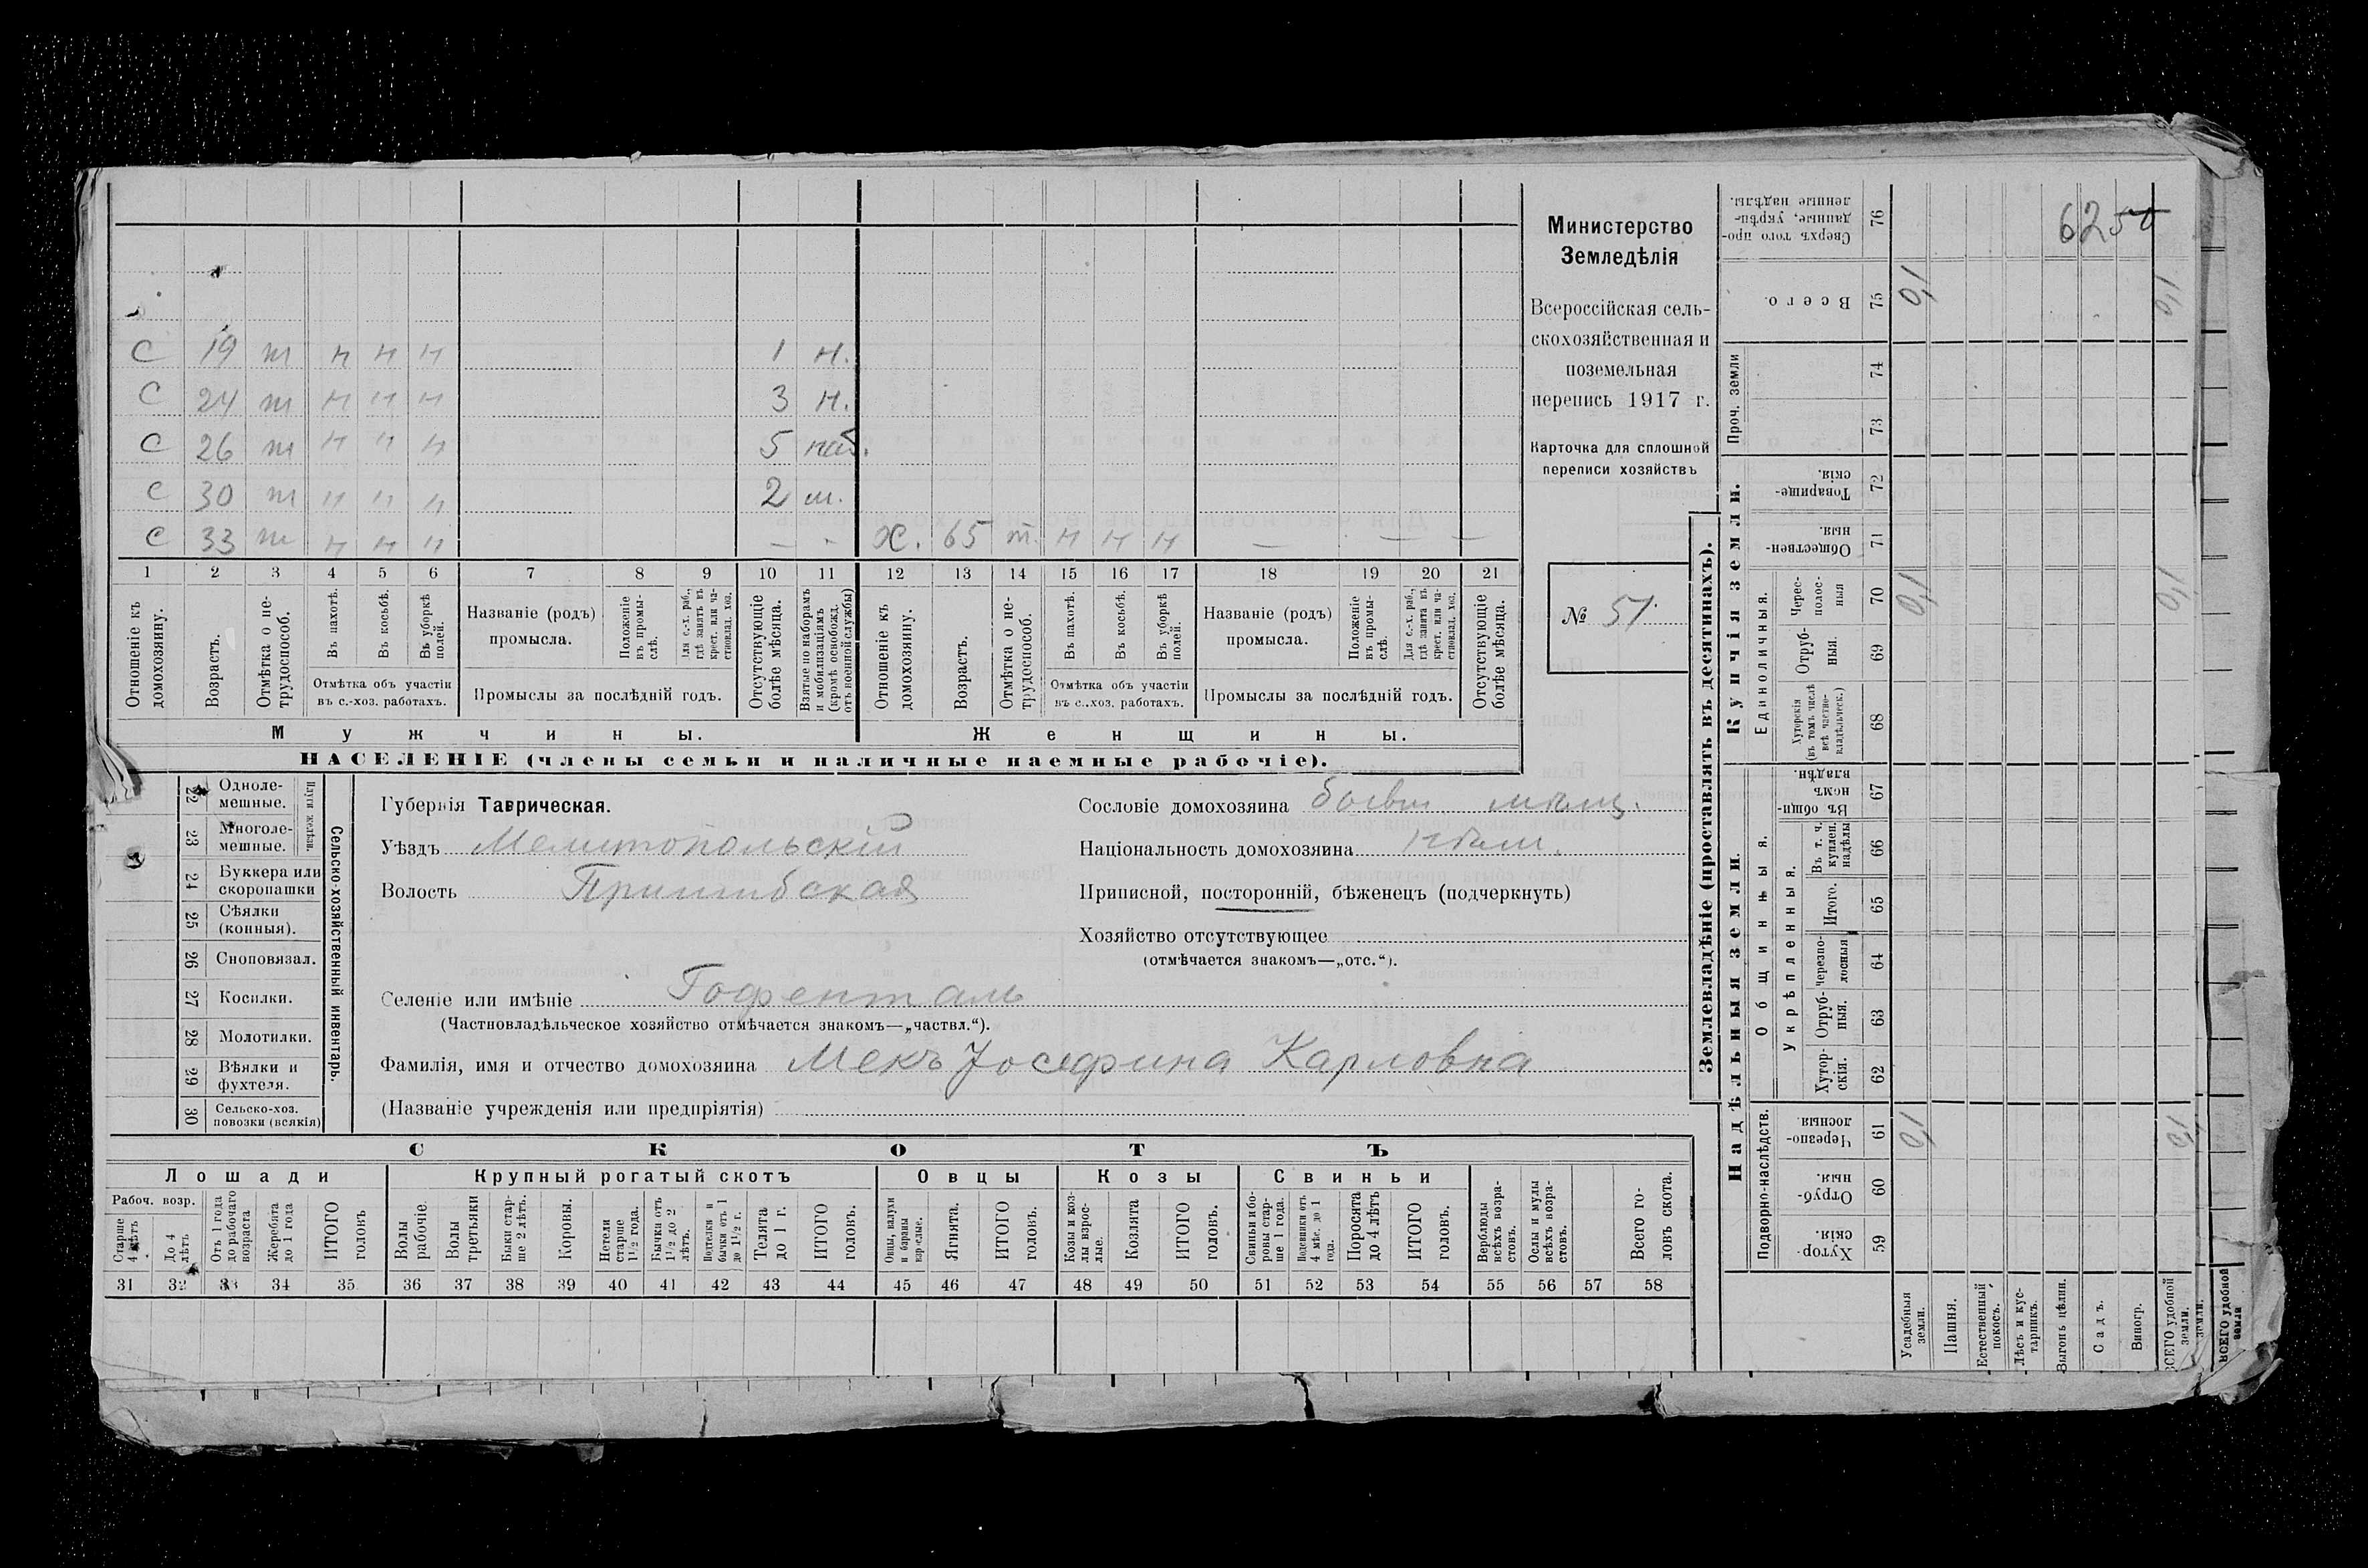 С 19 т н н н 1 н.
С 24 т н н н 3 н.
С 26 т н н н 5 наб.
С 30 т н н н 2 м.
С 33 т н н н — - Х. 65 т. н н н — — —
1 2 3 4 5 6 7 8 9 10 11 12 13 14 15 16 17 18 19 20 21
Отношеніе къ домохозяину.
Возрастъ.
Отмѣтка о не-трудоспособ.
Въ пахотѣ.
Въ косьбѣ.
Въ уборкѣ полей.
Отмѣтка объ участіи въ с.-хоз. работахъ.
Названіе (родъ) промысла.
Положеніе въ промы-слѣ.
Для с.-х. раб., гдѣ занятъ въ крест. или ча-стновлад. хоз.
Промыслы за послѣдній годъ.
Отсутствующіе болѣе мѣсяца.
Взятые по наборамъ и мобилизаціямъ (кромѣ освобожд. отъ военной службы)
Отношеніе къ домохозяину.
Возрастъ.
Отмѣтка о не-трудоспособ.
Въ пахотѣ.
Въ косьбѣ.
Въ уборкѣ полей.
Отмѣтка объ участіи въ с.-хоз. работахъ.
Названіе (родъ) промысла.
Положеніе въ промы-слѣ.
Для с.-х. раб., гдѣ занятъ въ крест. или ча-стновлад. хоз.
Промыслы за послѣдній годъ.
Отсутствующіе болѣе мѣсяца.
Мужчины.
Женщины.
НАСЕЛЕНІЕ (члены семьи и наличные наемные рабочіе).
Министерство
Земледѣлія
Всероссійская сель-
скохозяйственная и
поземельная
перепись 1917 г.
Карточка для сплошной
переписи хозяйствъ
№ 51.
22 Одноле-мешные.
23 Многоле-мешные.
Плуги желѣзн.
24 Буккера или скоропашки
25 Сѣялки (конныя).
26 Сноповязал.
27 Косилки.
28 Молотилки.
29 Вѣялки и фухтеля.
30 Сельско-хоз. повозки (всякія)
Сельско-хозяйственный инвентарь.
Губернія Таврическая.
Уѣздъ Мелитопольскій
Волость Пришибская
Сословіе домохозяина
Національность домохозяина
Приписной, посторонній, бѣженецъ (подчеркнуть)
Хозяйство отсутствующее
(отмѣчается знакомъ—„отс.“).
Селеніе или имѣніе Гофенталь
(Частновладѣльческое хозяйство отмѣчается знакомъ—„частвл.“).
Фамилія, имя и отчество домохозяина Мекъ Іосефина Карловна
(Названіе учрежденія или предпріятія)
СКОТЪ
Лошади
Крупный рогатый скотъ
Овцы
Козы
Свиньи
Рабоч. возр.
Старше 4 лѣтъ
До 4 лѣтъ
Отъ 1 года до рабочаго возраста
Жеребята до 1 года
ИТОГО головъ
Волы рабочіе.
Волы третьяки
Быки стар-ше 2 лѣтъ.
Коровы.
Нетели старше 1½ года.
Бычки отъ 1½ до 2 лѣтъ.
Подтелки и бычки отъ 1 до 1½ г.
Телята до 1 г.
ИТОГО головъ.
Овцы, валухи и бараны взрослые.
Ягнята.
ИТОГО головъ.
Козы и коз-лы взрос-лые.
Козлята
ИТОГО головъ.
Свиньи и бо-ровы стар-ше 1 года.
Подсвинки отъ 4 мѣс. до 1 года.
Поросята до 4 лѣтъ
ИТОГО головъ.
Верблюды всѣхъ возра-стовъ.
Ослы и мулы всѣхъ возра-стовъ.
Всего го-ловъ скота.
31 32 33 34 35 36 37 38 39 40 41 42 43 44 45 46 47 48 49 50 51 52 53 54 55 56 57 58
Землевладѣніе (проставлять въ десятинахъ).
Сверхъ того про-данные, укрѣп-ленные надѣлы. 76
6250
Всего. 75 0,1
Проч. земли 74 73
Купчія земли.
Товарище-скія. 72
Обществен-ныя. 71
Единоличныя.
Черес-полос-ныя 70 0,1
Отруб-ныя. 69
Хуторскія (въ томъ числѣ всѣ частно-владѣльческ.) 68
Надѣльныя земли.
Общинныя.
Въ общи-номъ владѣн. 67
Укрѣпленныя.
Въ т. ч. куплен. надѣлы 66
Итого. 65
Черезпо-лосныя 64
Отруб-ныя. 63
Хутор-скія. 62
Подворно-наслѣдств.
Черезпо-лосныя. 61 0,1
Отруб-ныя. 60
Хутор-скія. 59
Усадебныя земли.
Пашня.
Естественный покосъ.
Лѣсъ и кус-тарникъ.
Выгонъ цѣлин.
Садъ.
Виногр.
ВСЕГО удобной земли.
земли.
ВСЕГО удобной земли